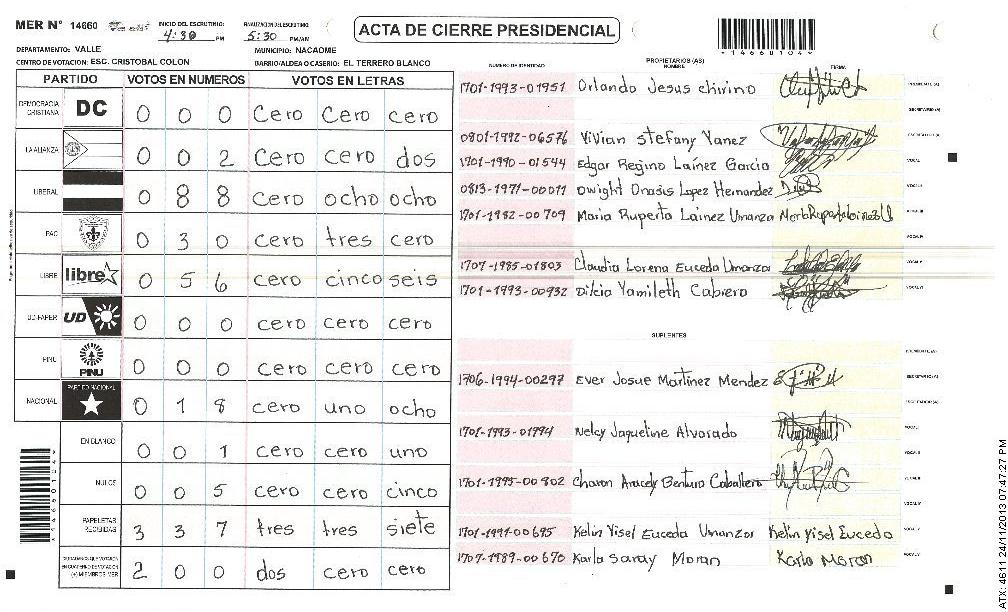 MER N° 14660
INICIO DEL ESCRUTINIO
4:30 PM
FINALIZACION DEL ESCRUTINIO
5:30 PM/AM
ACTA DE CIERRE PRESIDENCIAL
*146601041*
DEPARTAMENTO: VALLE
MUNICIPIO: NACAOME
CENTRO DE VOTACION: ESC. CRISTOBAL COLON
BARRIO/ALDEA O CASERIO: EL TERRERO BLANCO
PARTIDO VOTOS EN NUMEROS VOTOS EN LETRAS
DEMOCRACIA CRISTIANA DC 0 0 0 cero cero cero
LA ALIANZA 0 0 2 cero cero dos
LIBERAL 0 8 8 cero ocho ocho
PAC 0 3 0 cero tres cero
LIBRE libre 0 5 6 cero cinco seis
UD-FAPER UD 0 0 0 cero cero cero
PINU PINU 0 0 0 cero cero cero
NACIONAL PARTIDO NACIONAL 0 1 8 cero uno ocho
EN BLANCO 0 0 1 cero cero uno
NULOS 0 0 5 cero cero cinco
PAPELETAS RECIBIDAS 3 3 7 tres tres siete
CIUDADANOS QUE VOTARON EN CUADERNO DE VOTACION (+) MIEMBROS MER 2 0 0 dos cero cero
NUMERO DE IDENTIDAD
PROPIETARIOS (AS)
NOMBRE
FIRMA
1701-1993-01951 Orlando Jesus chirino PRESIDENTE (A)
SECRETARIO (A)
0801-1992-06576 Vivian stefany Yanez ESCRUTADOR (A)
1701-1990-01544 Edgar Regino Laínez Garcia VOCAL I
0813-1971-00011 Dwight Onasis Lopez Hernandez VOCAL II
1701-1982-00709 Maria Ruperta Laínez Umanza VOCAL III
VOCAL IV
1707-1985-01803 Claudia Lorena Euceda Umanzor VOCAL V
1701-1993-00932 Dilcia Yamileth Cabrera VOCAL VI
SUPLENTES
PRESIDENTE (A)
1706-1994-00297 Ever Josue Martínez Mendez SECRETARIO (A)
ESCRUTADOR (A)
1701-1993-01994 Nelcy Jaqueline Alvarado VOCAL I
VOCAL II
1701-1995-00802 Charon Aracely Bentura Caballero VOCAL III
VOCAL IV
1701-1991-00695 Kelin Yisel Euceda Umanzor Kelin Yisel Euceda VOCAL V
1707-1989-00670 Karla saray Moran Karla Moran VOCAL VI
ATX: 4611 24/11/2013 07:47:27 PM